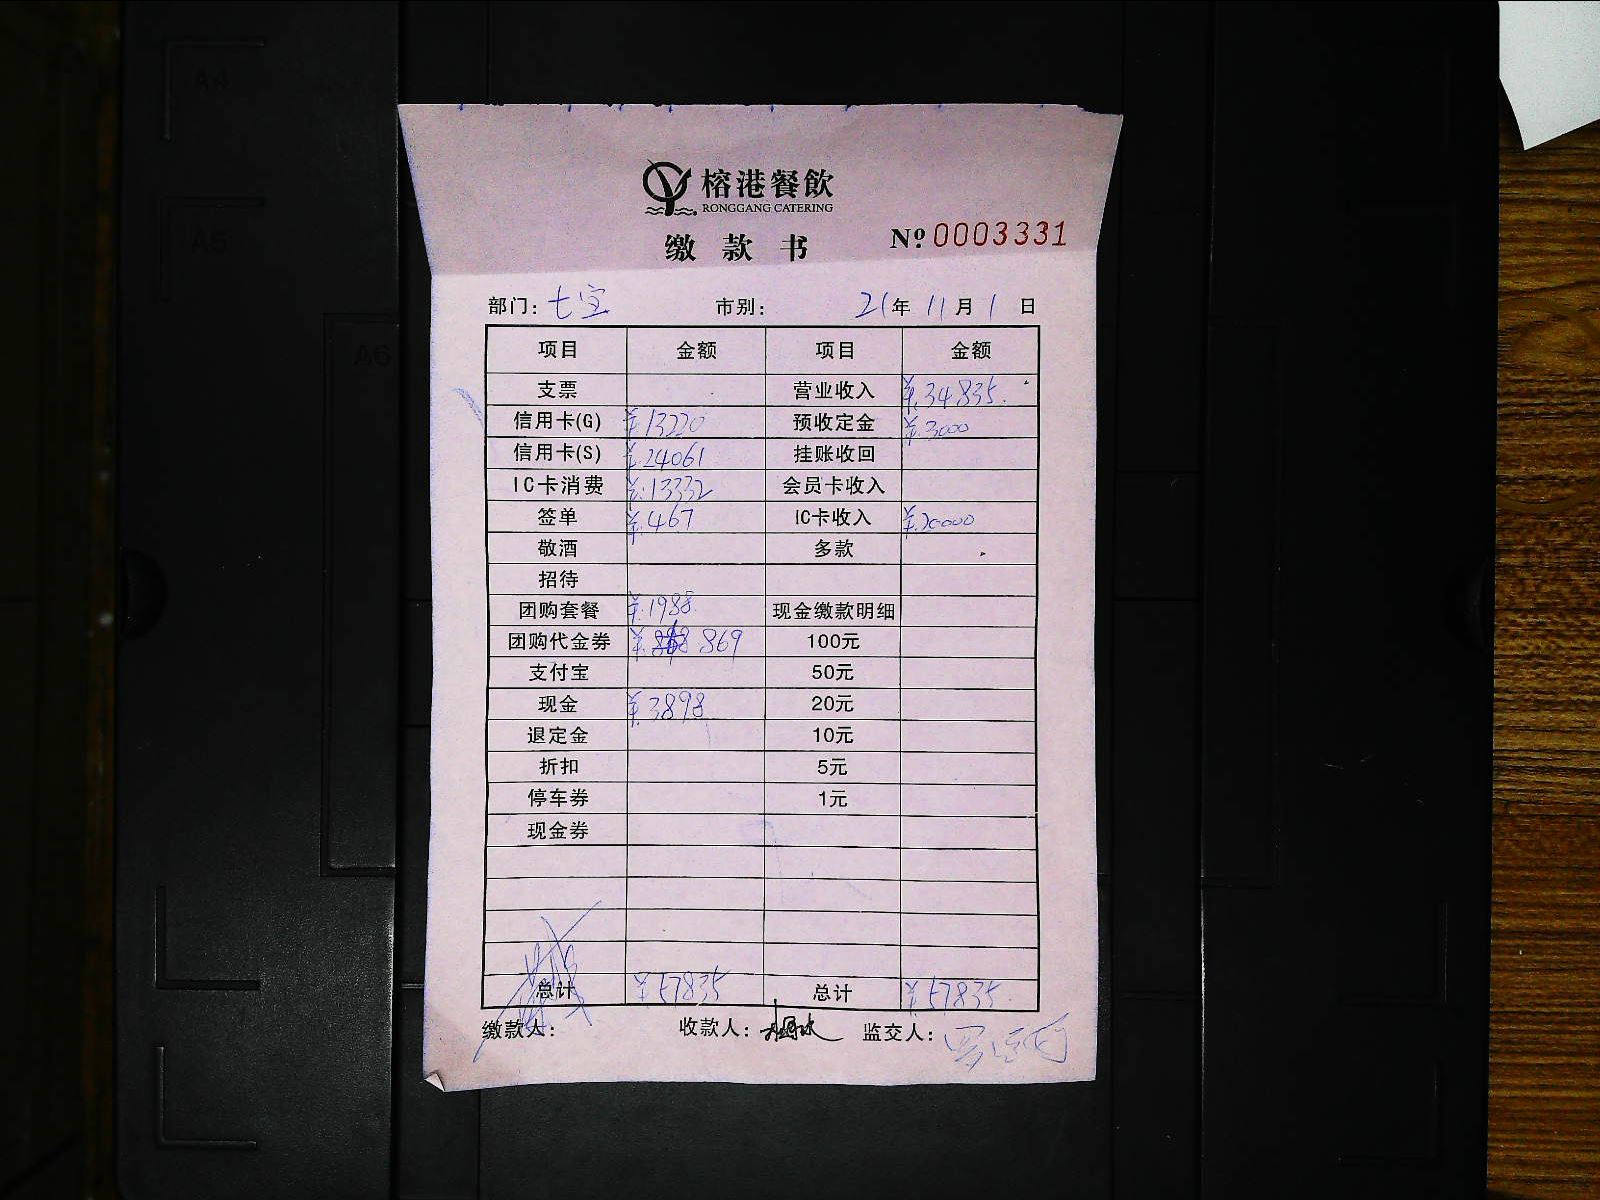 榕港餐飲
RONGGANG CATERING
缴款书 Nº 0003331
部门: 七宝 市别: 21年 11月 1日
项目 金额 项目 金额
支票 营业收入 ¥34835.
信用卡(G) ¥13220 预收定金 ¥3000
信用卡(S) ¥24061 挂账收回
IC卡消费 ¥13332 会员卡收入
签单 ¥467 IC卡收入 ¥20000
敬酒 多款
招待
团购套餐 ¥1988. 现金缴款明细
团购代金券 ¥ 869 100元
支付宝 50元
现金 ¥3898 20元
退定金 10元
折扣 5元
停车券 1元
现金券
总计 ¥57835 总计 ¥57835.
缴款人: 收款人: 监交人:
A4
A5
A6